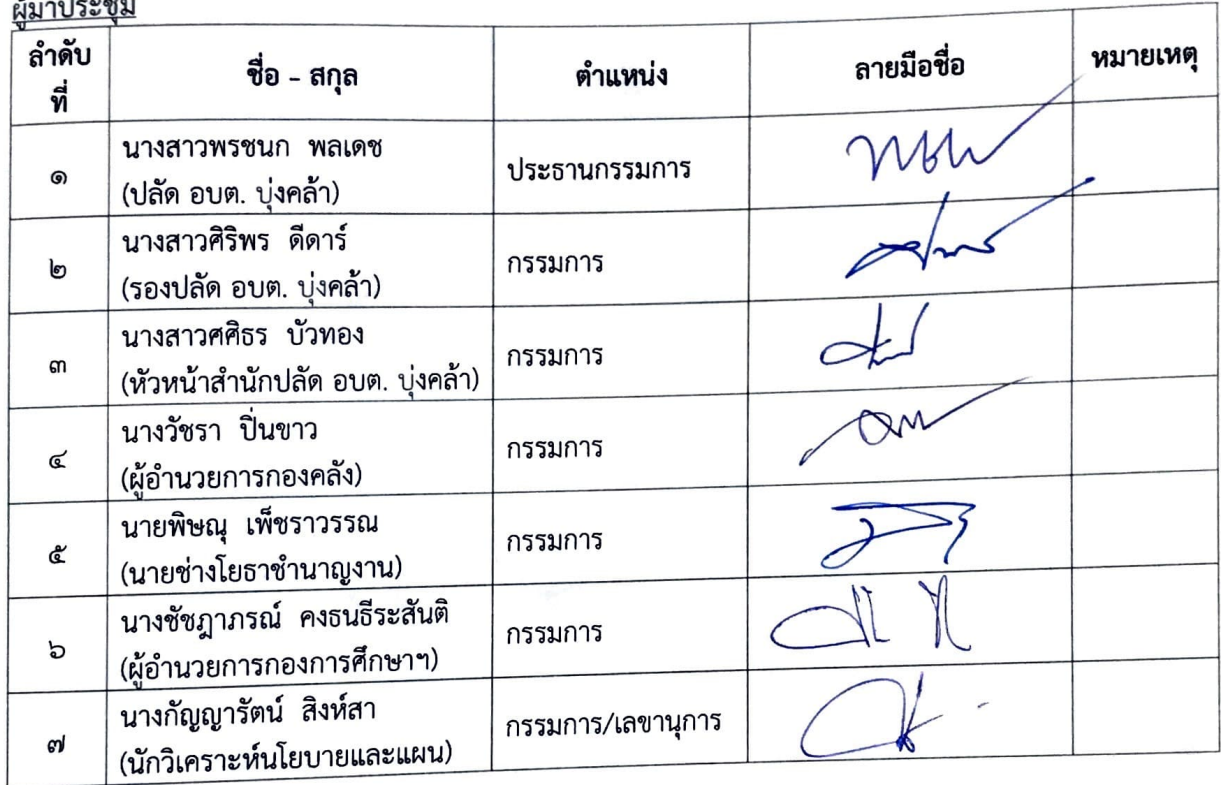 ผู้มาประชุม
ลำดับ
ที่
ชื่อ - สกุล
ตำแหน่ง
ลายมือชื่อ
หมายเหตุ
๑
นางสาวพรชนก พลเดช
(ปลัด อบต. บุ่งคล้า)
ประธานกรรมการ
๒
นางสาวศิริพร ดีดาร์
(รองปลัด อบต. บุ่งคล้า)
กรรมการ
๓
นางสาวศศิธร บัวทอง
(หัวหน้าสำนักปลัด อบต. บุ่งคล้า)
กรรมการ
๔
นางวัชรา ปิ่นขาว
(ผู้อำนวยการกองคลัง)
กรรมการ
๕
นายพิษณุ เพ็ชราวรรณ
(นายช่างโยธาชำนาญงาน)
กรรมการ
๖
นางชัชฎาภรณ์ คงธนธีระสันติ
(ผู้อำนวยการกองการศึกษาฯ)
กรรมการ
๗
นางกัญญารัตน์ สิงห์สา
(นักวิเคราะห์นโยบายและแผน)
กรรมการ/เลขานุการ